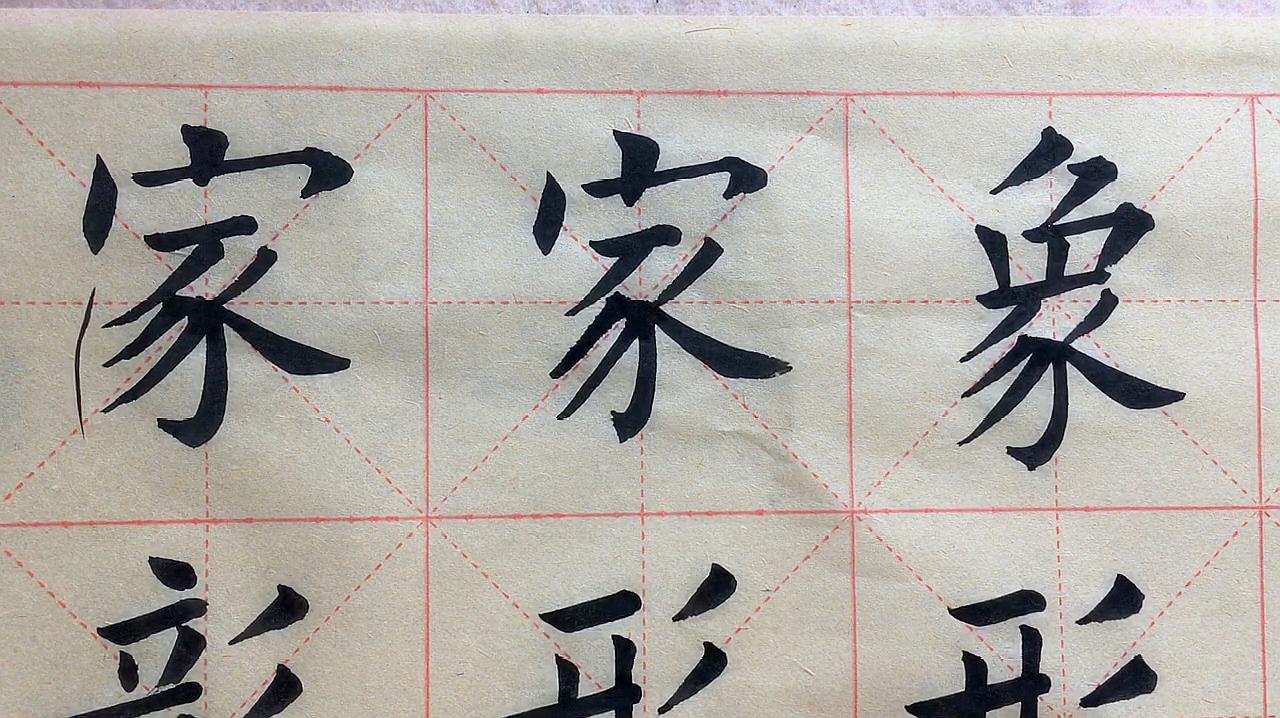 家家象
彰形形